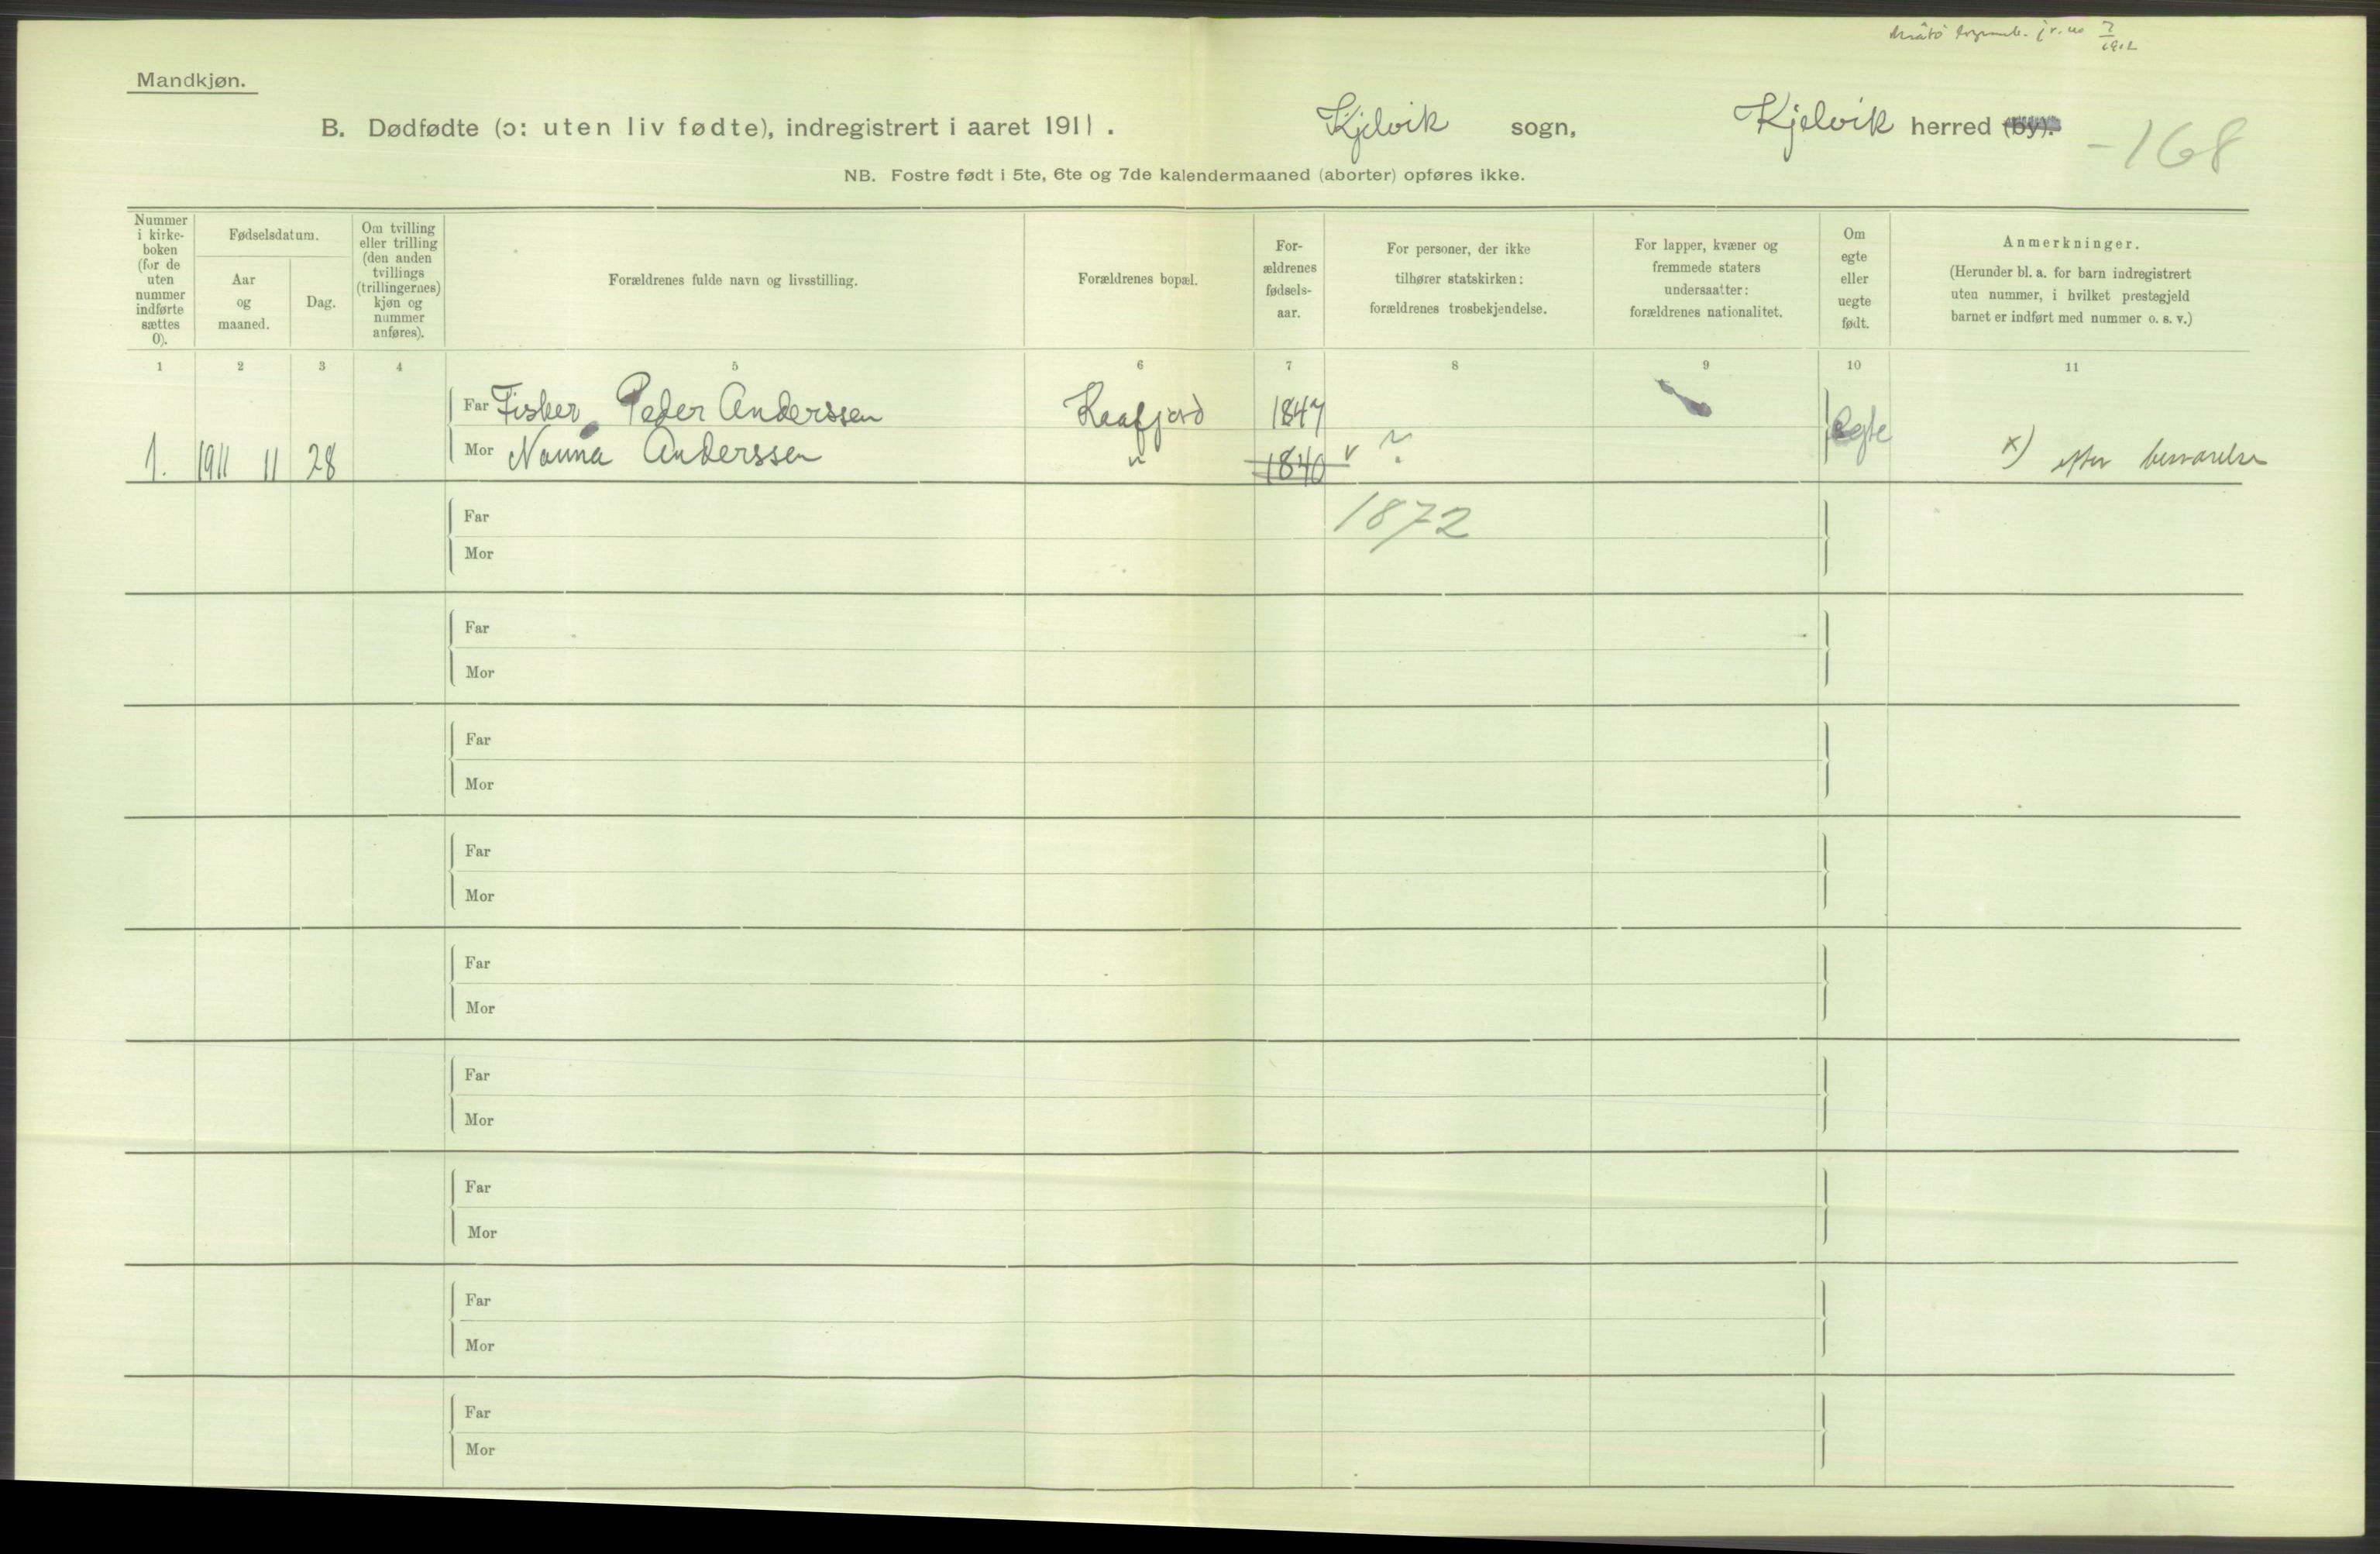 Mandkjøn.
B. Dødfødte (ɔ: uten liv fødte), indregistrert i aaret 1911. Kjelvik sogn, Kjelvik herred (by).
-168
NB. Fostre født i 5te, 6te og 7de kalendermaaned (aborter) opføres ikke.
Nummer
i kirke-
boken
(for de
uten
nummer
indførte
sættes
0).
Fødselsdatum.
Aar
og
maaned.
Dag.
Om tvilling
eller trilling
(den anden
tvillings
(trillingernes)
kjøn og
nummer
anføres).
Forældrenes fulde navn og livsstilling.
Forældrenes bopæl.
For-
ældrenes
fødsels-
aar.
For personer, der ikke
tilhører statskirken:
forældrenes trosbekjendelse.
For lapper, kvæner og
fremmede staters
undersaatter:
forældrenes nationalitet.
Om
egte
eller
uegte
født.
Anmerkninger.
(Herunder bl. a. for barn indregistrert
uten nummer, i hvilket prestegjeld
barnet er indført med nummer o. s. v.)
1 2 3 4 5 6 7 8 9 10 11
Far Fisker Peder Anderssen Kaafjord 1847
1. 1911 11 28 Mor Nanna Anderssen " 1840 v ? Egte x) efter besvarelse
Far 1872
Mor
Far
Mor
Far
Mor
Far
Mor
Far
Mor
Far
Mor
Far
Mor
Far
Mor
Far
Mor